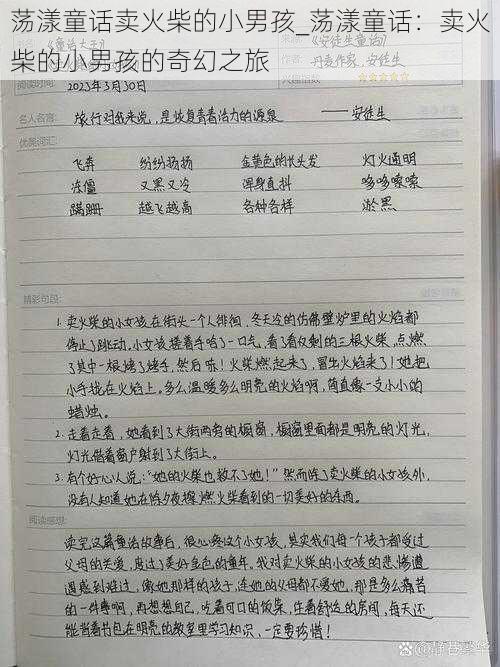 荡漾童话卖火柴的小男孩_荡漾童话：卖火
柴的小男孩的奇幻之旅
《安徒生童话》
作者 丹麦作家,安徒生
阅读时间: 2023年3月30日
名人名言: 旅行对我来说,是恢复青春活力的源泉 ——安徒生
优美词汇:
飞奔 纷纷扬扬 金黄色的长头发 灯火通明
冻僵 又黑又冷 浑身直抖 哆哆嗦嗦
蹒跚 越飞越高 各种各样 淤黑
精彩句段:
1. 卖火柴的小女孩在街头一个人徘徊,冬天冷的仿佛壁炉里的火焰都
停止了跳动,小女孩搓着手哈了一口气,看了看仅剩的三根火柴,点燃
了其中一根烤了烤手,然后哧!火柴燃起来了,冒出火焰来了!她把
小手拢在火焰上。多么温暖多么明亮的火焰啊,简直像一支小小的
蜡烛。
2. 走着走着,她看到了大街两旁的橱窗,橱窗里面都是明亮的灯光,
灯光借着窗户射到了大街上。
3. 有个好心人说:“她的火柴也救不了她!”然而除了卖火柴的小女孩外,
没有人知道她在除夕夜擦燃火柴看到的一切美好的东西。
阅读感想:
读完这篇童话故事后,很心疼这个小女孩,其实我们每一个孩子都受过
父母的关爱,度过了美好金色的童年,我对卖火柴的小女孩的悲惨遭
遇感到难过,像她那样的孩子,连她的父母都不爱她,那是多么痛苦
的一件事啊,再想想自己,吃着可口的饭菜,住着舒适的房间,每天还
能背着书包在明亮的教室里学习知识,一定要珍惜!